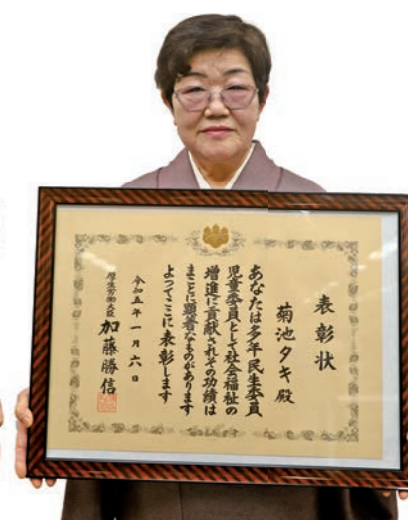 表彰状
菊池タキ殿
あなたは多年民生委員
児童委員として社会福祉の
増進に貢献されその功績は
まことに顕著なものがあります
よってここに表彰します
令和五年一月六日
厚生労働大臣 加藤勝信